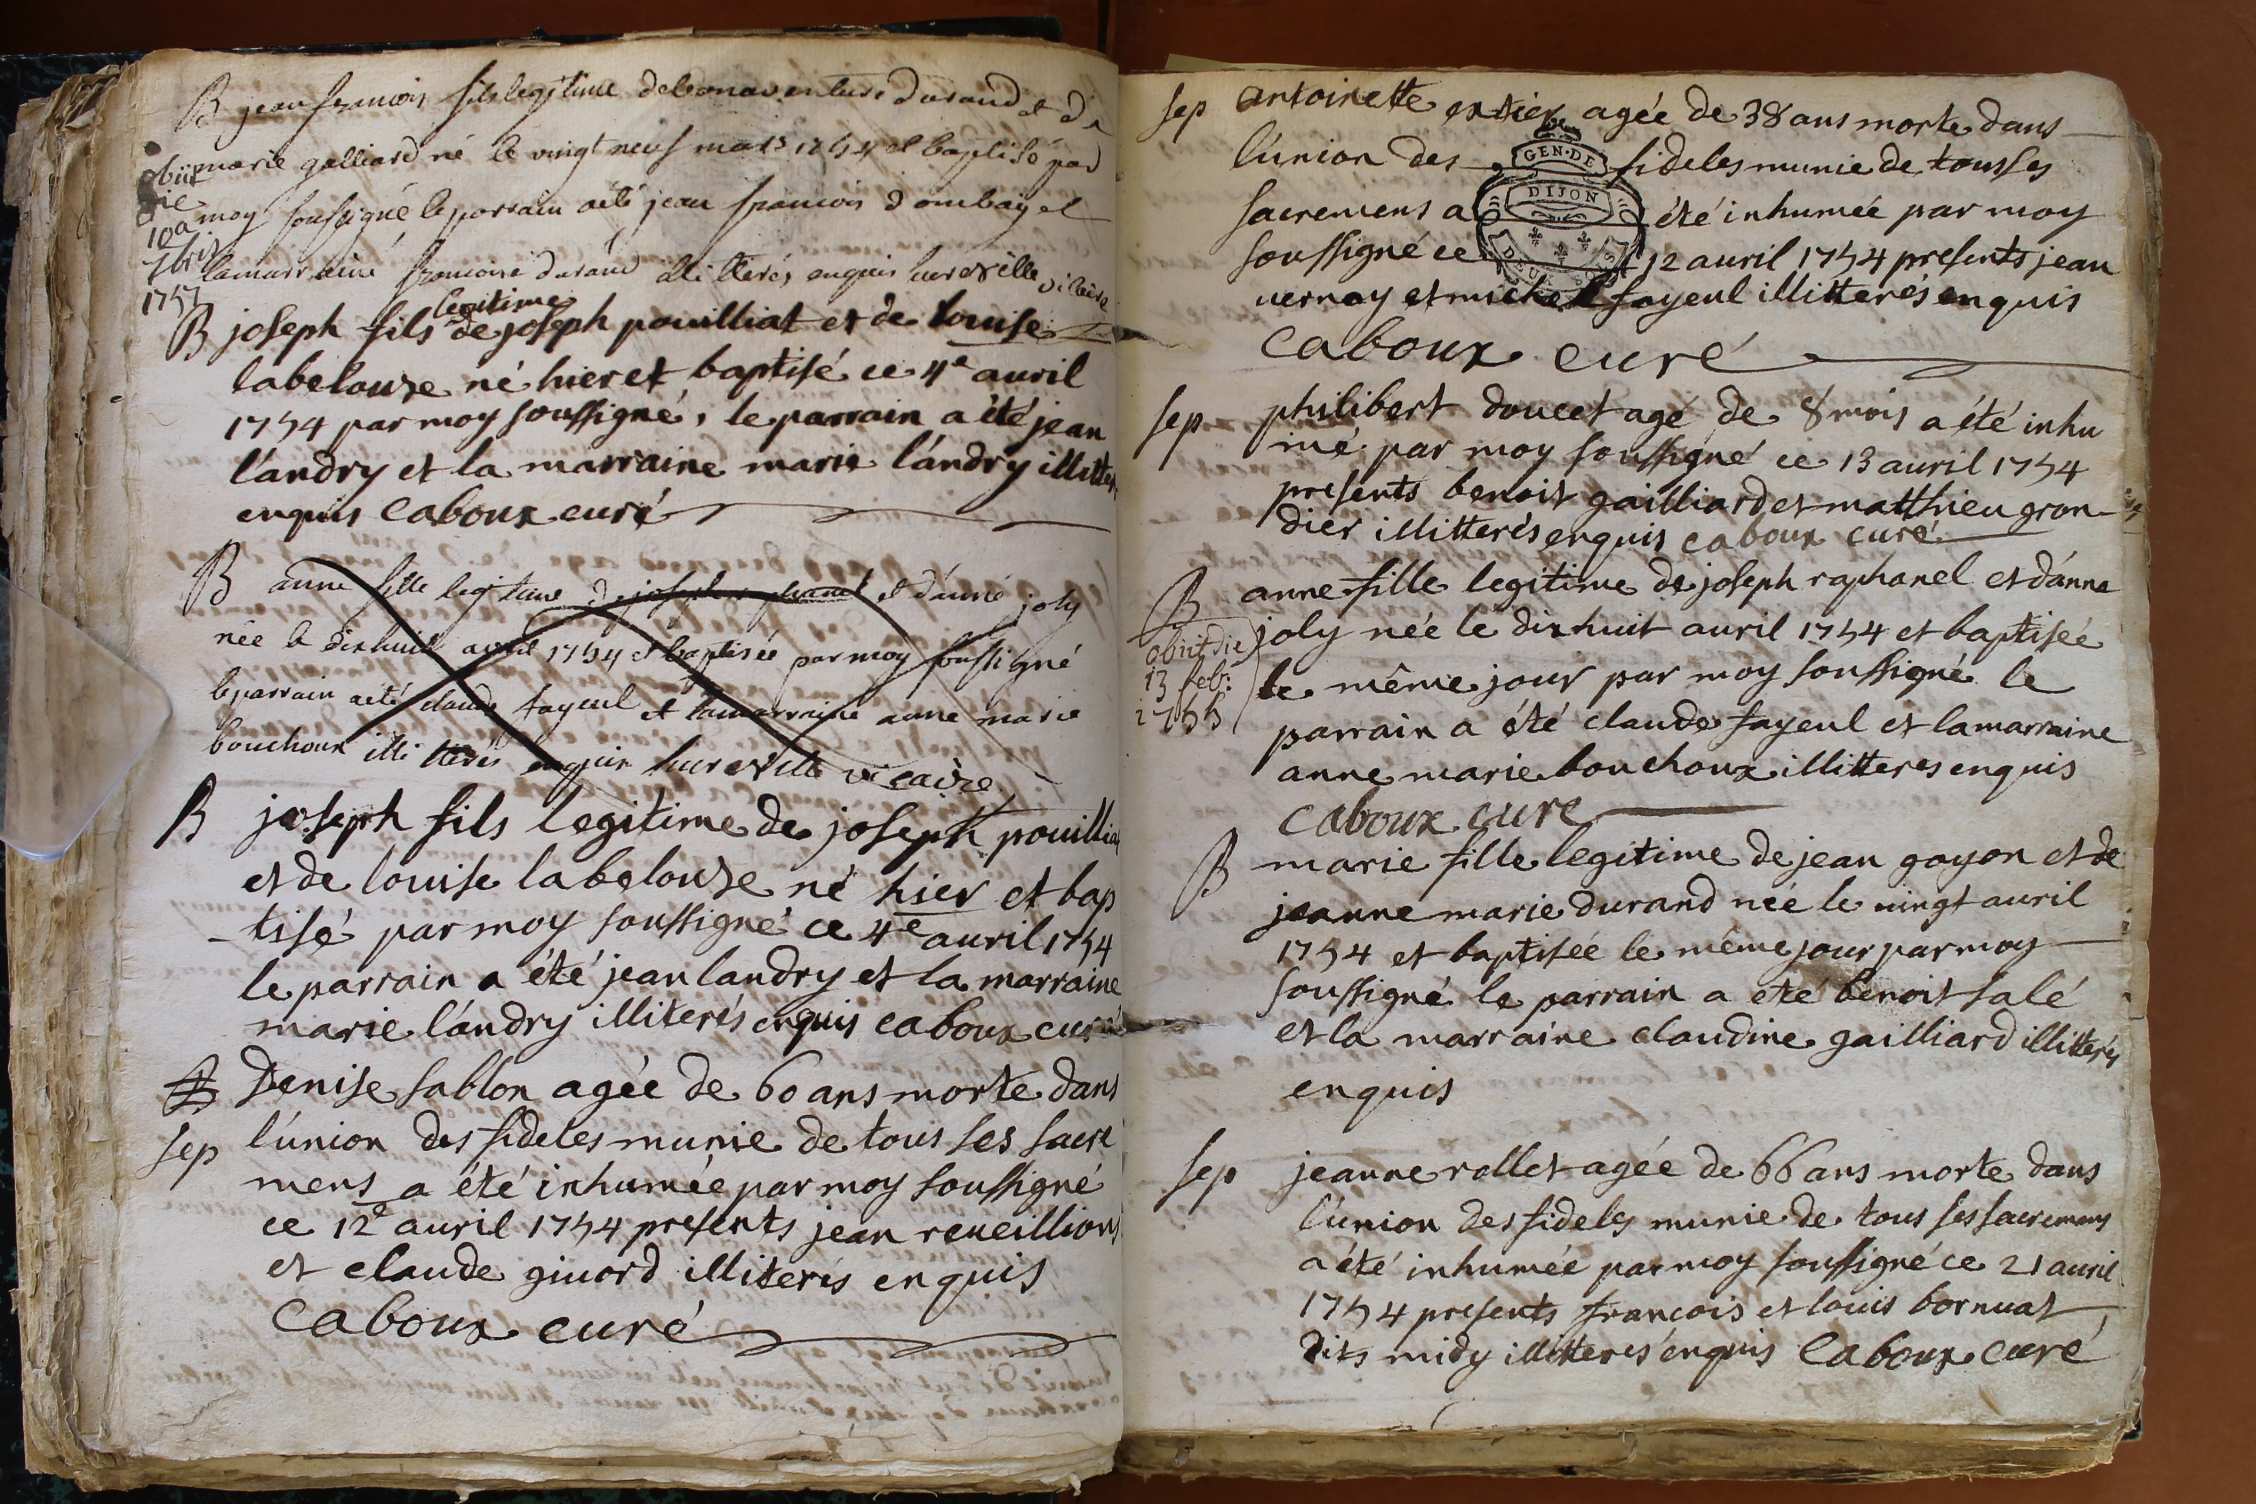 B jean francois fils legitime de bonaventure durand et de
obiit marie galliard né le vingt neuf mars 1754 et baptisé par
die
10a moy soussigné le parrain a été jean francois dombay et
7bris
lamarraine francoise durand illitterés enquis vicaire
1757
legitime
B joseph fils de joseph pouilliat et de louise
labelouse né hier et baptisé ce 4e auril
1754 par moy soussigné, le parrain a été jean
l'andry et la marraine marie l'andry illitter
enquis caboux curé
B anne fille legitime de joseph raphanel et d'anne joly
née le dixhuit avril 1754 et baptisée par moy soussigné
le parrain a été claude fayeul et lamarraine anne marie
bouchoux illitterés enquis vicaire
B joseph fils legitime de joseph pouillia
et de louise labelouse né hier et bap
-tisé par moy soussigné ce 4e auril 1754
le parrain a été jean landry et la marraine
marie l'andry illiterés enquis caboux curé
B Denise sablon agée de 60 ans morte dans
sep l'union des fideles munie de tous ses sacre
mens a été inhumée par moy soussigné
ce 12e auril 1754 presents jean reueillion
et claude giuord illiterés enquis
caboux curé
sep antoinette agée de 38 ans morte dans
l'union des fideles munie de tous ses
GEN·DE
DIJON
sacremens a été inhumée par moy
soussigné ce 12 auril 1754 presents jean
DEUX SOLS
uernay et michel fayeul illitterés enquis
caboux curé
sep philibert doucet agé de 8 mois a été inhu
mé par moy soussigné ce 13 auril 1754
presents benoit gailliard et matthieu gron-
dier illitterés enquis caboux curé
B anne fille legitime de joseph raphanel et d'anne
joly née le dixhuit auril 1754 et baptisée
obiit die
13 febr:
le même jour par moy soussigné le
1755
parrain a été claude fayeul et lamarraine
anne marie bouchoux illitteres enquis
caboux cure
B marie fille legitime de jean gayon et de
jeanne marie durand née le uingt auril
1754 et baptisée le même jour par moy
soussigné le parrain a été benoit salé
et la marraine claudine gailliard illitterés
enquis
sep jeanne rollet agée de 66 ans morte dans
l'union des fideles munie de tous ses sacremens
a été inhumée par moy soussigné ce 21 auril
1754 presents francois et louis bornuat
dits midy illitterés enquis caboux curé